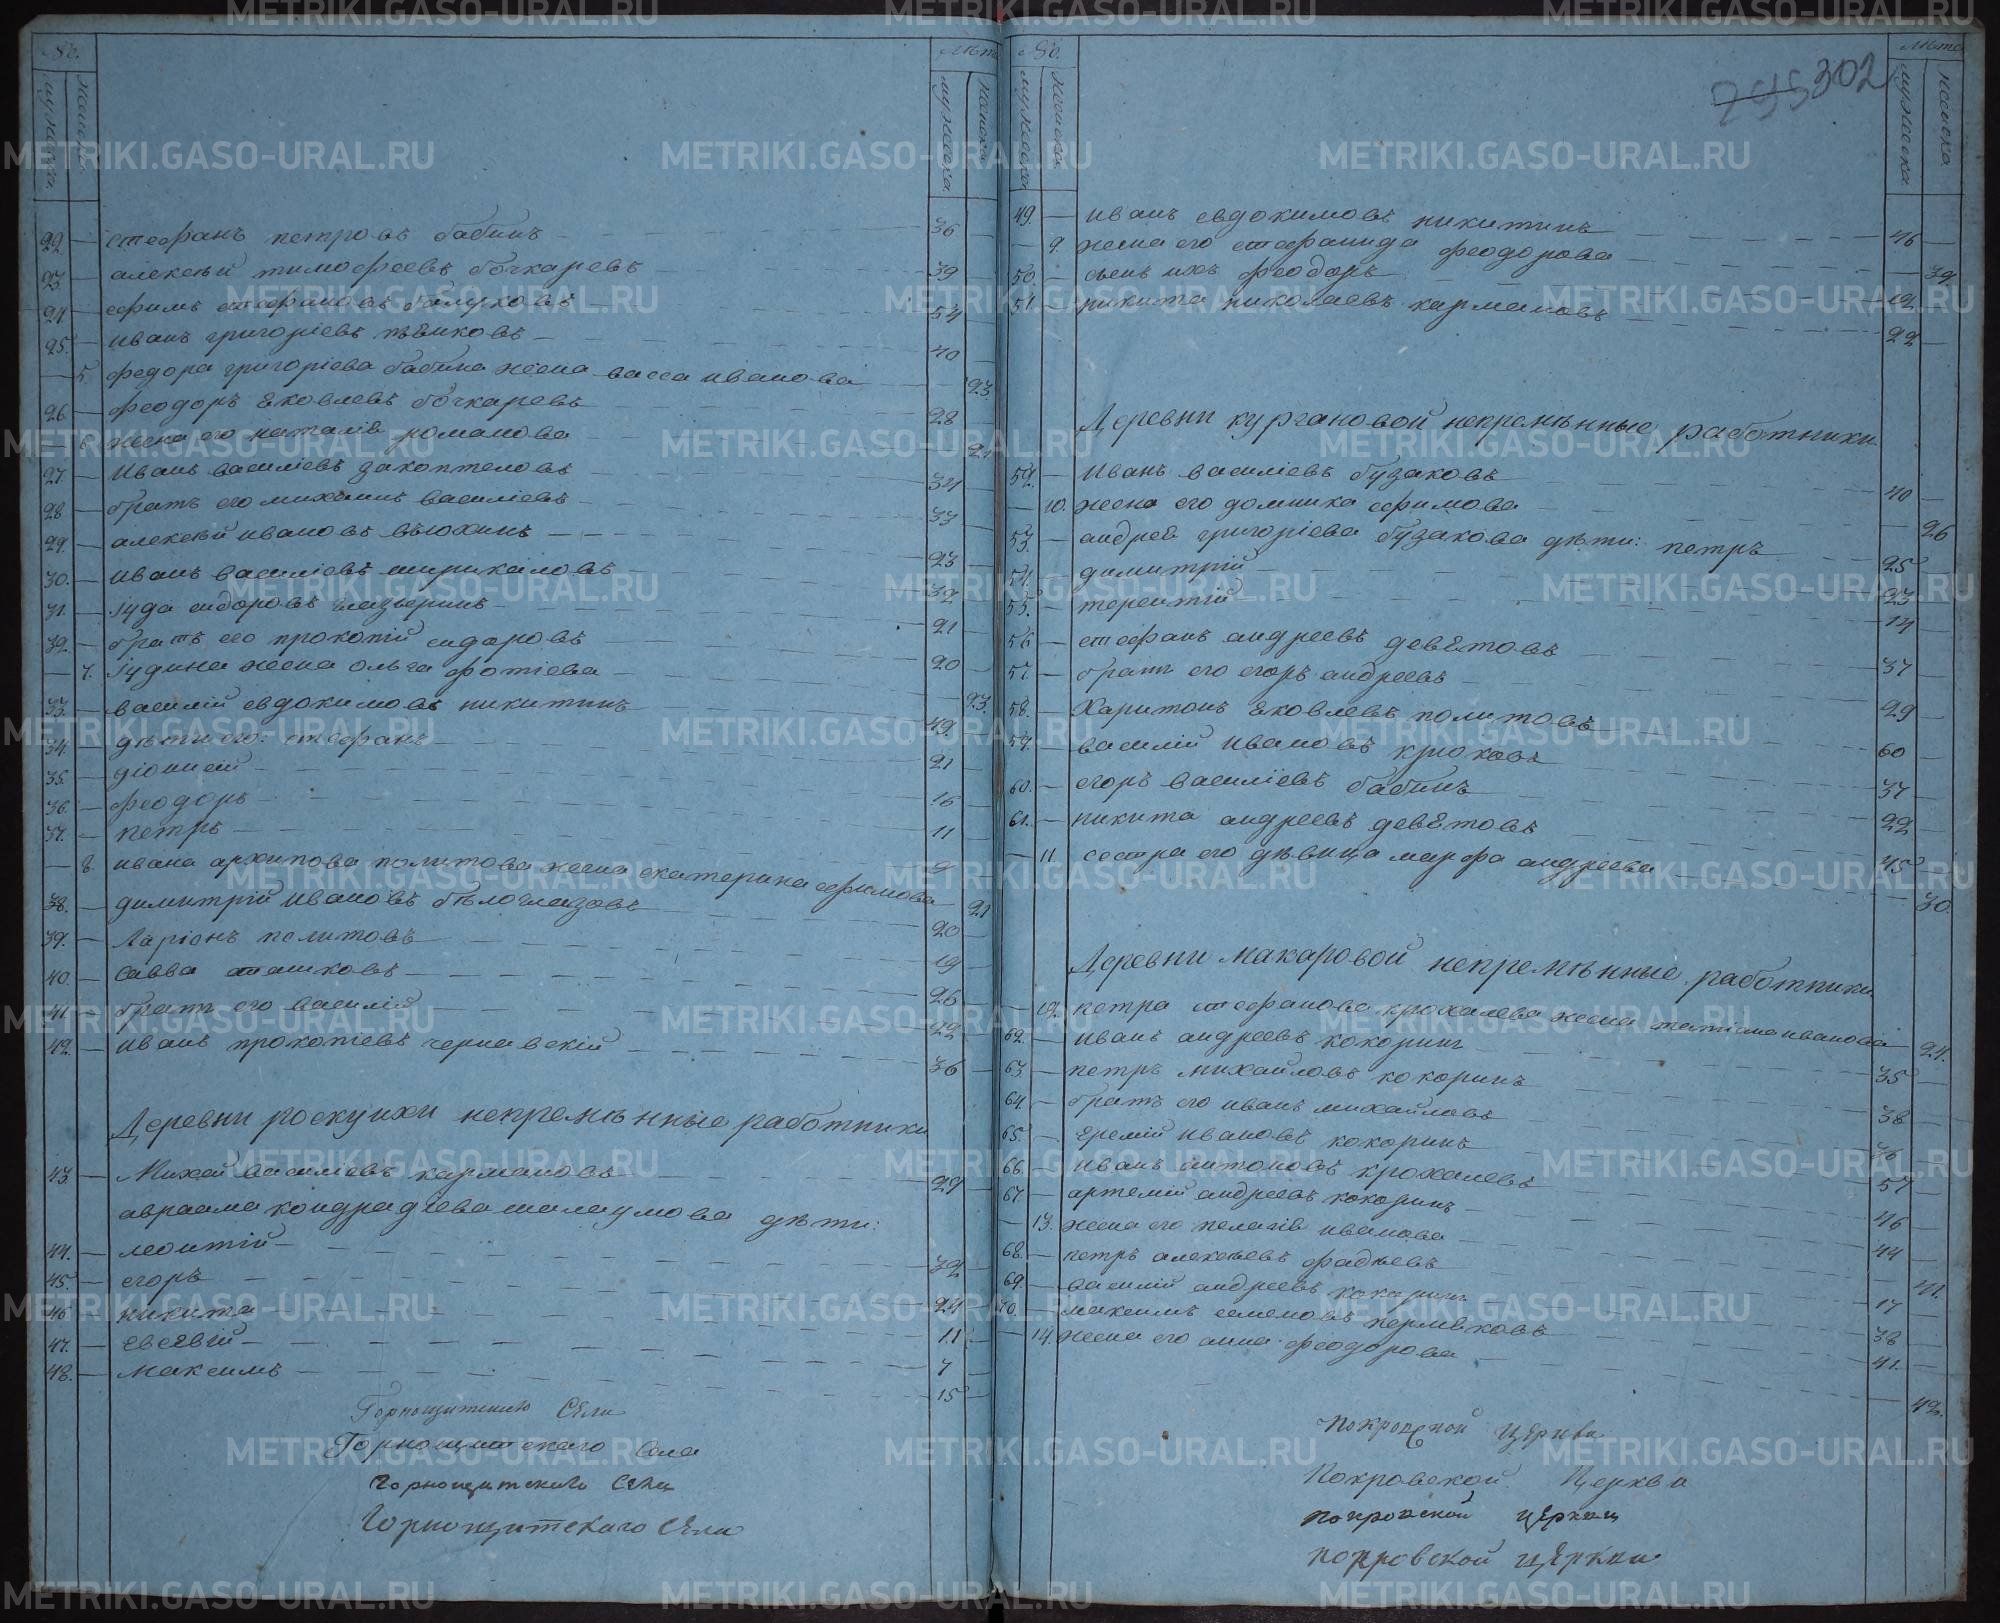 №. Лѣта
мужеска женска мужеска женска
22. — стефанъ петровъ бабинъ — 36 —
23. — алексѣй тимофеевъ бочкаревъ — 39 —
24. — ефимъ стефановъ — 54 —
25. — иванъ григоріевъ пѣнковъ — 40 —
— 5. федора григоріева бабина жена васса иванова — 23.
26. — феодоръ Яковлевъ бочкаревъ — 28 —
— 6. жена его наталія романова — 21
27. — иванъ василіевъ закоптеловъ — 34 —
28. — братъ его михаилъ василіевъ — 33 —
29. — алексѣй ивановъ вьюхинъ — 23 —
30. — иванъ василіевъ ширикаловъ — 32 —
31. — Іуда сидоровъ — 21 —
32. — братъ его прокопій сидоровъ — 20 —
— 7. Іудина жена ольга фотіева — 23.
33. — василій евдокимовъ никитинъ — 49. —
34. — дѣти его: стефанъ — 21 —
35. — діонисій — 16 —
36. — феодоръ — 11 —
37. — петръ — 9 —
— 8. ивана архипова политова жена екатерина ефимова — 21
38. — димитрій ивановъ бѣлоглазовъ — 20 —
39. — Ларіонъ политовъ — 19 —
40. — Савва сташковъ — 26 —
41. — братъ его василій — 22 —
42. — иванъ прокопіевъ чернавскій — 36 —
Деревни роскуихи непремѣнные работники
43. — Михаи василіевъ кармановъ — 29 —
авраама кондрадіева шалаумова дѣти:
44. — леонтій — 32 —
45. — егоръ — 24 —
46. — никита — 11 —
47. — евсѣвій — 7 —
48. — максимъ — 15 —
Горнощитскаго Сѣла
Горнощитскаго села
Горнощитскаго Села
Горнощитскаго Сѣла
№. Лѣта
мужеска женска мужеска женска
795 302
49. — иванъ евдокимовъ никитинъ — 46 —
— 9. жена его стефанида феодорова — 39.
50. — сынъ ихъ феодоръ — 12 —
51. — никита николаевъ кармановъ — 22 —
Деревни кургановой непремѣнные работники
52. — иванъ василіевъ бузаковъ — 40 —
— 10. жена его домника ефимова — 26
53. — андрея григоріева бузакова дѣти: петръ — 25 —
54. — димитрій — 23 —
55. — терентій — 14 —
56. — стефанъ андреевъ девятовъ — 37 —
57. — братъ его егоръ андреевъ — 29 —
58. — Харитонъ Яковлевъ политовъ — 60 —
59. — василій ивановъ крюковъ — 37 —
60. — егоръ василіевъ бабинъ — 22 —
61. — никита андреевъ девятовъ — 45 —
— 11. сестра его дѣвица марфа андреева — 30.
Деревни макаровой непремѣнные работники
— 12. петра стефанова крохалева жена татіана иванова — 24.
62. — иванъ андреевъ кокоринъ — 35 —
63. — петръ михайловъ кокоринъ — 38 —
64. — братъ его иванъ михайловъ —
65. — Еремій ивановъ кокоринъ — 57 —
66. — иванъ антоновъ крохалевъ — 46 —
67. — артемій андреевъ кокоринъ — 44 —
— 13. жена его пелагія иванова — 41.
68. — петръ алексѣевъ фадѣевъ — 17 —
69. — василій андреевъ кокоринъ — 38 —
70. — максимъ семеновъ пермяковъ — 41. —
— 14. жена его анна феодорова — 42.
покровской церкви
Покровской Церкви
покровской церкви
покровской церкви
METRIKI.GASO-URAL.RU